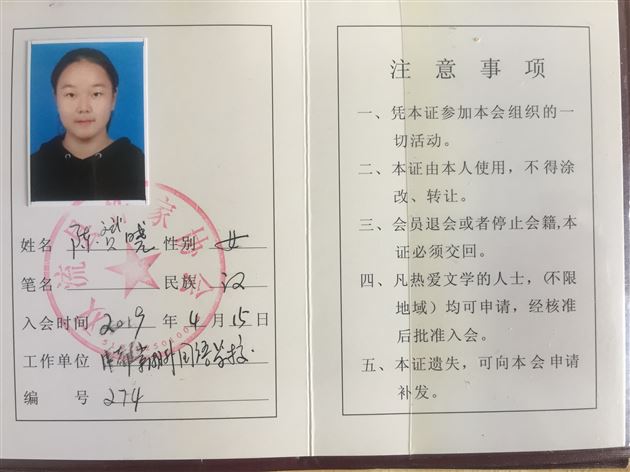 姓名 陈赟晓 性别 女
笔名 民族 汉
入会时间 2019 年 4 月 15 日
工作单位 成都棠湖外国语学校
编 号 274
注意事项
一、凭本证参加本会组织的一
切活动。
二、本证由本人使用，不得涂
改、转让。
三、会员退会或者停止会籍,本
证必须交回。
四、凡热爱文学的人士，(不限
地域）均可申请，经核准
后批准入会。
五、本证遗失，可向本会申请
补发。